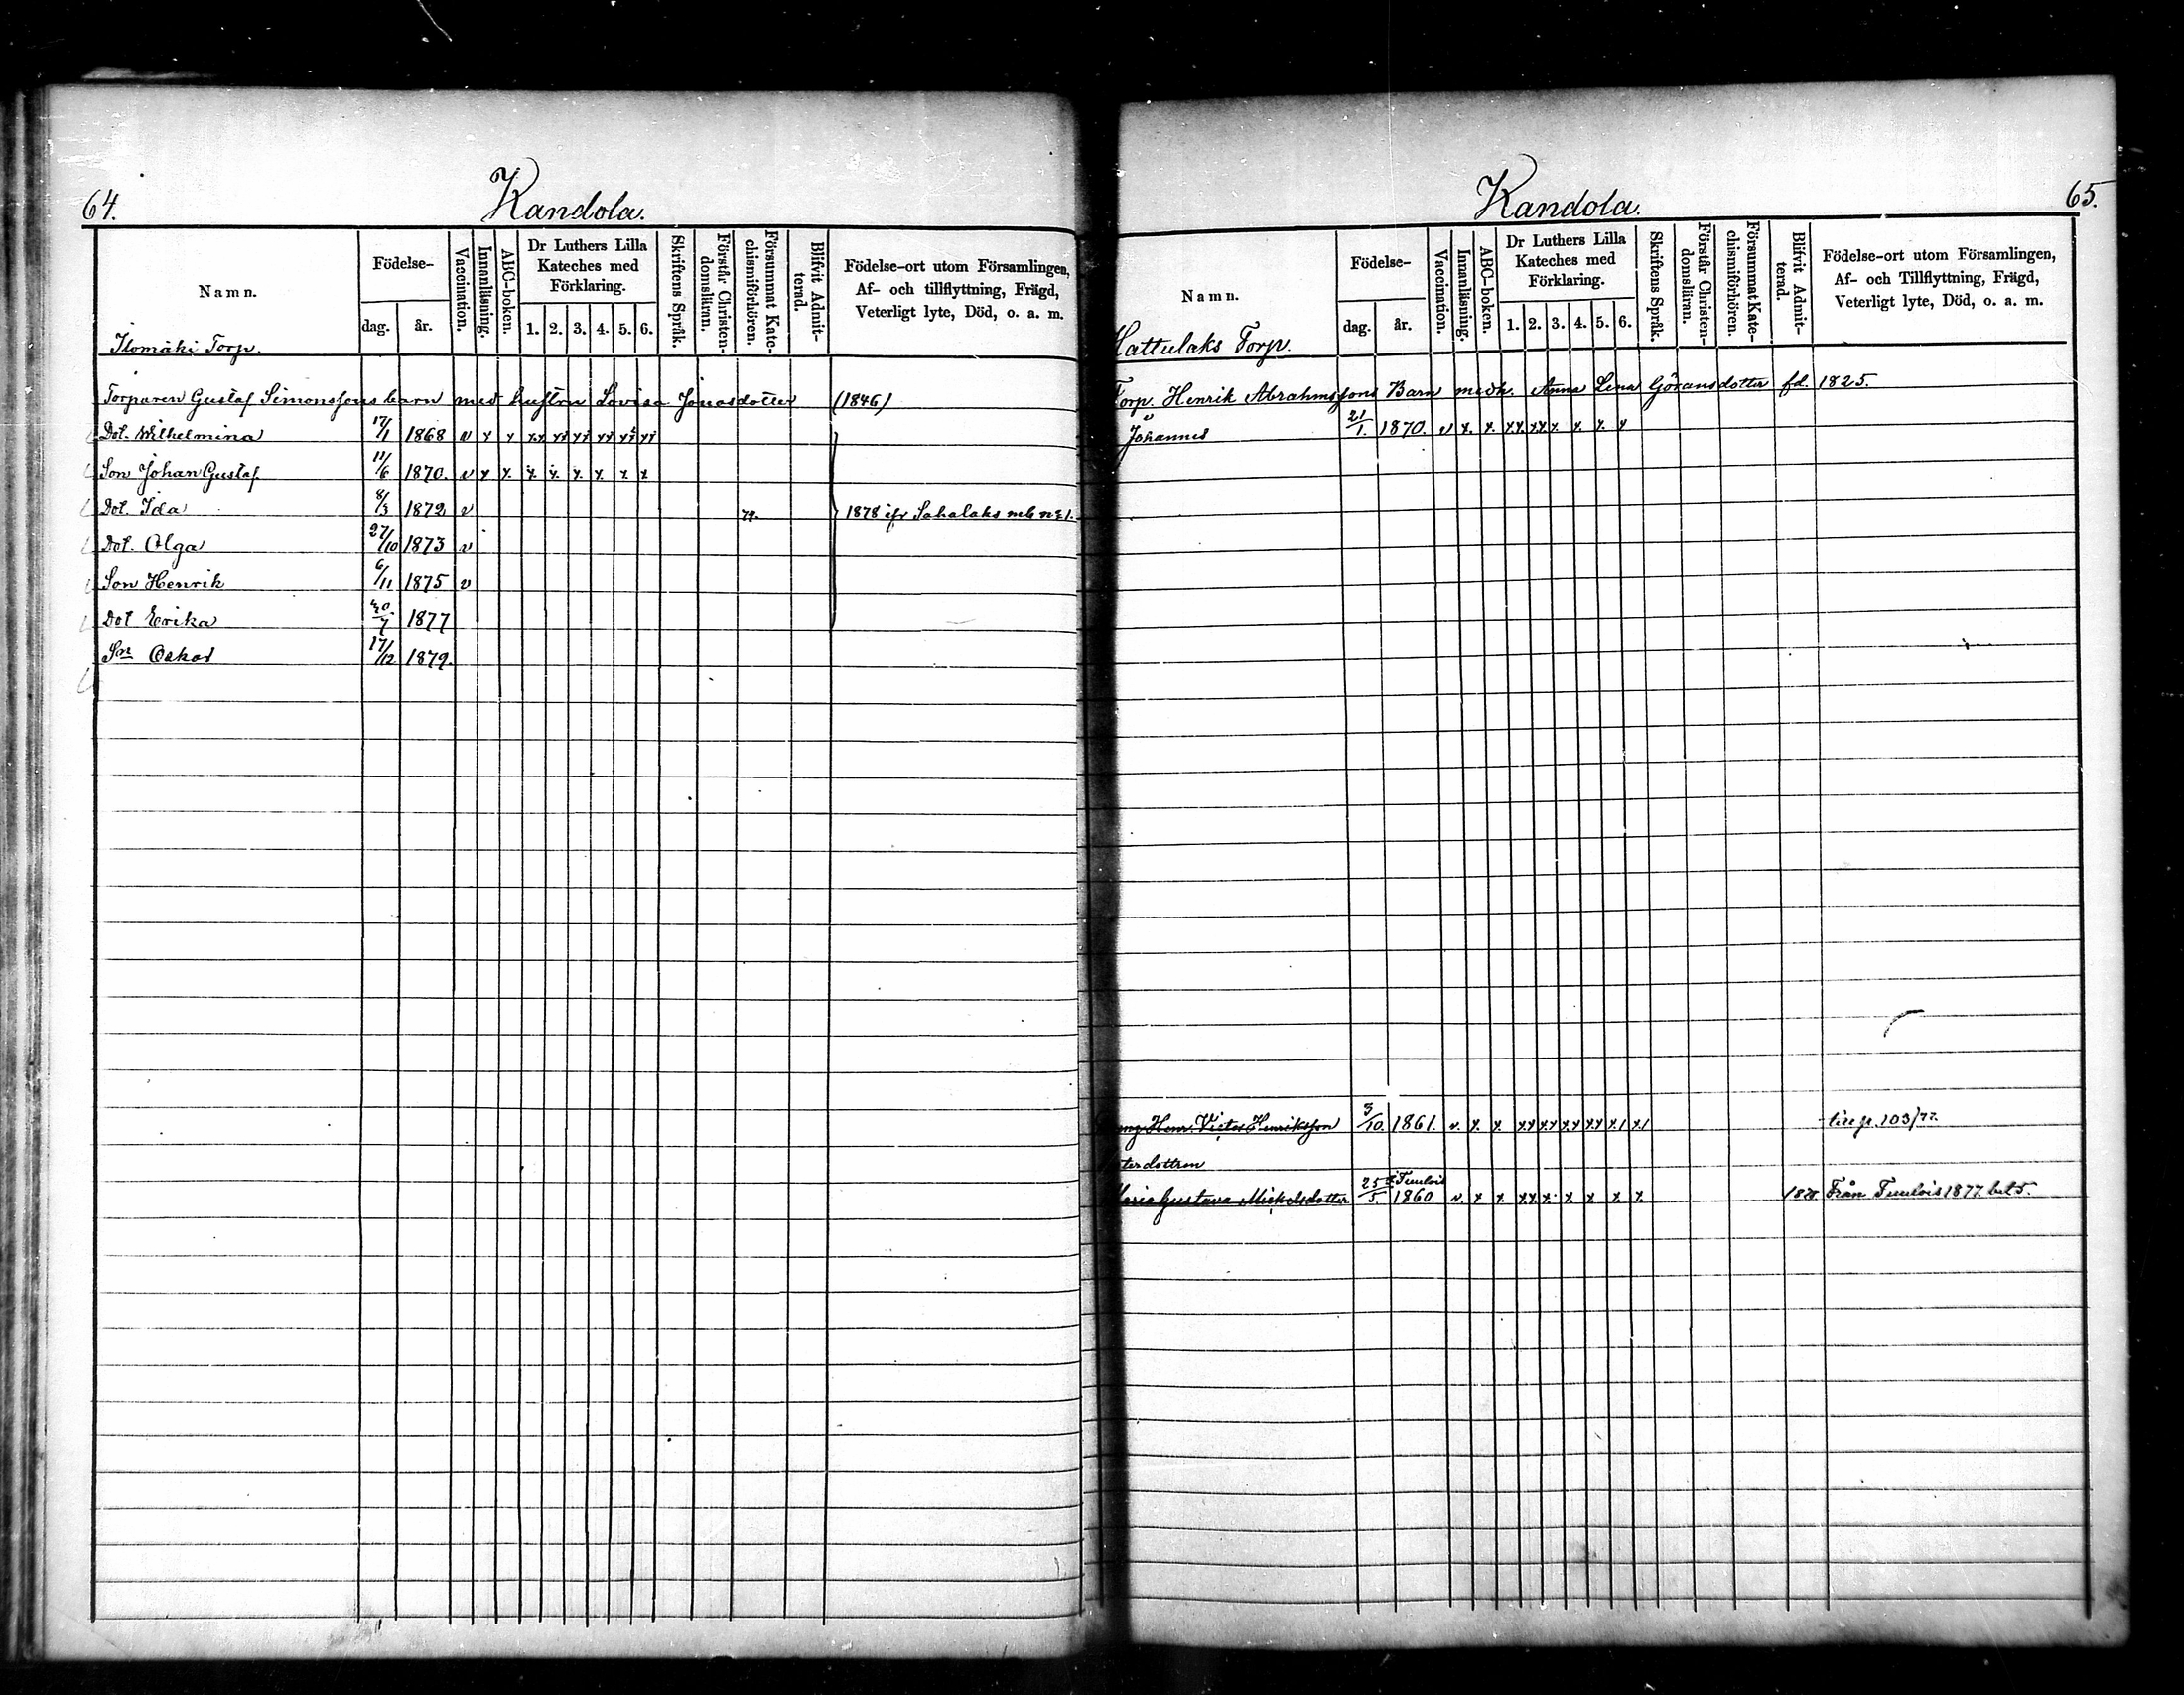 64.
Kandola.
Namn.
Födelse-
dag.
år.
Vaccination.
Innanläsning.
ABC-boken.
Dr Luthers Lilla
Kateches med
Förklaring.
1. 2. 3. 4. 5. 6.
Skriftens Språk.
Förstår Christen-
domsläran.
Försummat Kate-
chismiförhören.
Blifvit Admit-
terad.
Födelse-ort utom Församlingen,
Af- och tillflyttning, Frägd,
Veterligt lyte, Död, o. a. m.
Ilomäki Torp.
Torparen Gustaf Simonssons barn med hustrn Lovisa Jonasdotter (1846)
Dot. Wilhelmina 17/1 1868 v x x xx xx xx xx xx xx
Son Johan Gustaf 11/6 1870. v x x. x. x. x. x. x. x
Dot. Ida 8/3 1872 v 79. 1878 ifr Sahalaks mb n:o 1.
Dot. Olga 27/10 1873 v
Son Henrik 6/11 1875 v
Dot Erika 30/7 1877
Sn Oskar 17/12 1879.
65.
Kandola.
Namn.
Födelse-
dag.
år.
Vaccination.
Innanläsning.
ABC-boken.
Dr Luthers Lilla
Kateches med
Förklaring.
1. 2. 3. 4. 5. 6.
Skriftens Språk.
Förstår Christen-
domsläran.
Försummat Kate-
chismiförhören.
Blifvit Admit-
terad.
Födelse-ort utom Församlingen,
Af- och Tillflyttning, Frägd,
Veterligt lyte, Död, o. a. m.
Hattulaks Torp.
Torp. Henrik Abrahmssons Barn med h. Anna Lena Göransdotter fd. 1825.
Johannes 21/1. 1870. v x. x. xx. xx x. x. x. x
Henr. Victor Henriksson 3/10. 1861. v. x. x. xx xx xx xx x1 x1 till p. 103/77.
dottren
Maria Gustava Mickelsdotter 25/5. Tuulois 1860. v. x x xx x. x x x x. 1878. Från Tuulois 1877. bet 5.